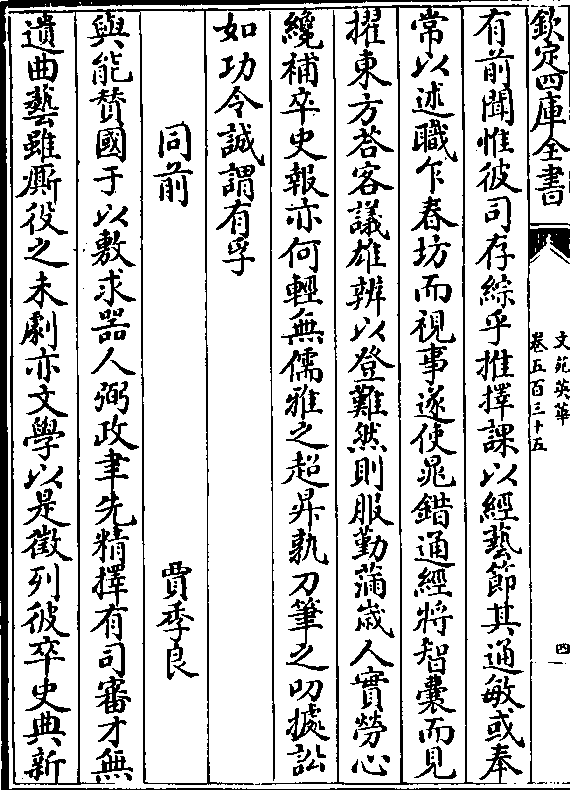 欽定四庫全書
文苑英華
卷五百三十五
四
有前聞惟彼司存綜乎推擇課以經藝節其通敏或奉
常以述職乍春坊而視事遂使晁錯通經將智囊而見
擢東方荅客議雄辨以登難然則服勤蒲歲人實勞心
纔補卒史報亦何輕無儒雅之超昇執刀筆之叨據訟
如功令誠謂有孚
同前
賈季良
與能賛國于以敷求器人弼政聿先精擇有司審才無
遺曲藝雖厮役之未劇亦文學以是徵列彼卒史典新